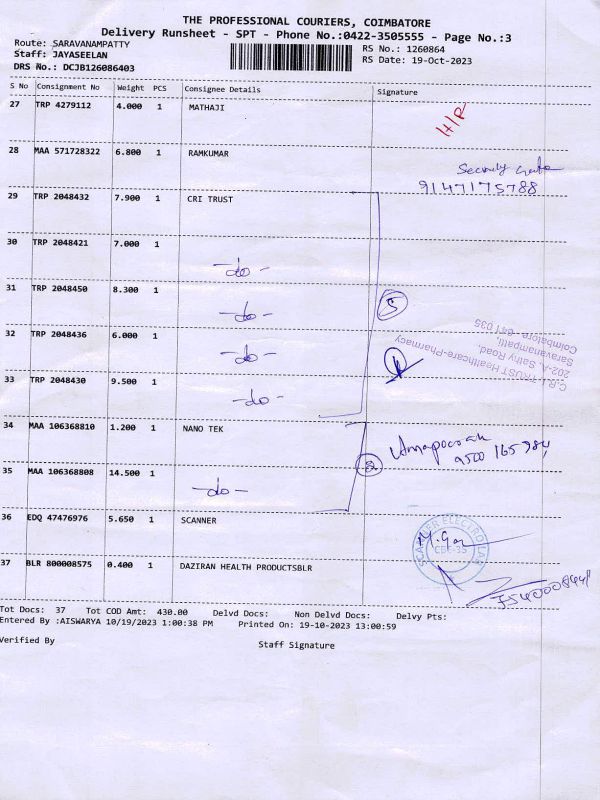 THE PROFESSIONAL COURIERS, COIMBATORE
Delivery Runsheet - SPT - Phone No.:0422-3505555 - Page No.:3
Route: SARAVANAMPATTY
RS No.: 1260864
Staff: JAYASEELAN
RS Date: 19-Oct-2023
DRS No.: DCJB126086403
S No Consignment No Weight PCS Consignee Details Signature
27 TRP 4279112 4.000 1 MATHAJI
H/R
28 MAA 571728322 6.800 1 RAMKUMAR
Security
9147175788
29 TRP 2048432 7.900 1 CRI TRUST
30 TRP 2048421 7.000 1
-do-
31 TRP 2048450 8.300 1
-do-
5
32 TRP 2048436 6.000 1
-do-
C.R.I. TRUST Healthcare-Pharmacy
202-A, Sathy Road,
Saravanampatti,
Coimbatore - 641 035
33 TRP 2048430 9.500 1
-do-
34 MAA 106368810 1.200 1 NANO TEK
2
35 MAA 106368808 14.500 1
-do-
36 EDQ 47476976 5.650 1 SCANNER
CBE-35
37 BLR 800008575 0.400 1 DAZIRAN HEALTH PRODUCTSBLR
Tot Docs: 37 Tot COD Amt: 430.00 Delvd Docs: Non Delvd Docs: Delvy Pts:
Entered By :AISWARYA 10/19/2023 1:00:38 PM Printed On: 19-10-2023 13:00:59
Verified By
Staff Signature